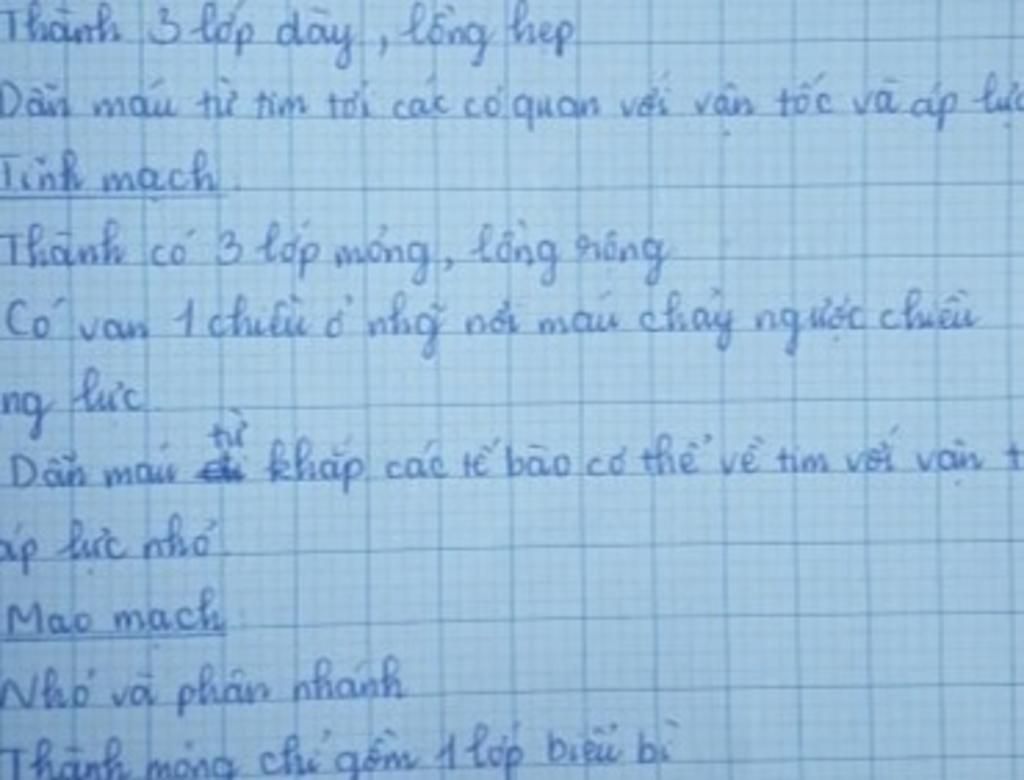 Thành 3 lớp dày, lòng hẹp
Dẫn máu từ tim tới các cơ quan với vận tốc và áp lực
Tĩnh mạch
Thành có 3 lớp mỏng, lòng rộng
Có van 1 chiều ở nhg nơi máu chảy ngược chiều
ng lực
Dẫn máu từ khắp các tế bào cơ thể về tim với vận t
áp lực nhỏ
Mao mạch
Nhỏ và phân nhánh
Thành mỏng chỉ gồm 1 lớp biểu bì